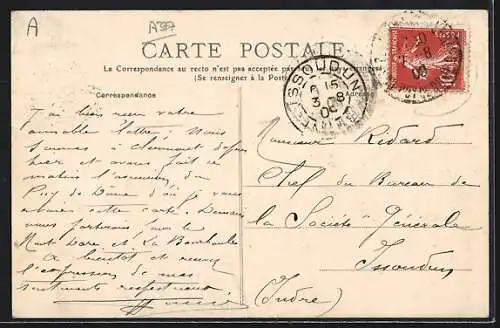 A
A97
CARTE POSTALE
La Correspondance au recto n'est pas acceptée par
(Se renseigner à la Poste)
Correspondance
ISSOUDUN
6 15
3 8
INDRE
J'ai bien reçu votre
aimable lettre. Nous
sommes à Clermont depuis
hier et avons fait ce
matin l'ascension du
Puy de Dôme d'où je vous
envoie cette carte. Demain
nous partirons pour le
Mont Dore et La Bourboule
A bientôt et recevez
l'expression de mes
sentiments respectueux
Monsieur Ridard
Chef du Bureau de
la Société Générale
Issoudun
(Indre)